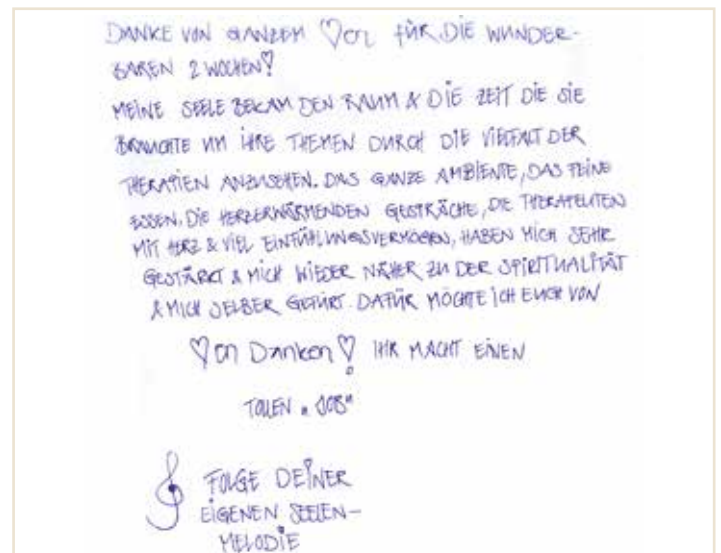 DANKE VON GANZEM ♡en FÜR DIE WUNDER-
BAREN 2 WOCHEN!
MEINE SEELE BEKAM DEN RAUM & DIE ZEIT DIE SIE
BRAUCHTE UM IHRE THEMEN DURCH DIE VIELFALT DER
THERAPIEN ANZUSEHEN. DAS GANZE AMBIENTE, DAS FEINE
ESSEN, DIE HERZERWÄRMENDEN GESPRÄCHE, DIE THERAPEUTEN
MIT HERZ & VIEL EINFÜHLUNGSVERMÖGEN, HABEN MICH SEHR
GESTÄRKT & MICH WIEDER NÄHER ZU DER SPIRITUALITÄT
& MICH SELBER GEFÜRT. DAFÜR MÖCHTE ICH EUCH VON
♡en Danken ♡! IHR MACHT EINEN
TOLLEN „JOB"
FOLGE DEINER
EIGENEN SEELEN-
MELODIE